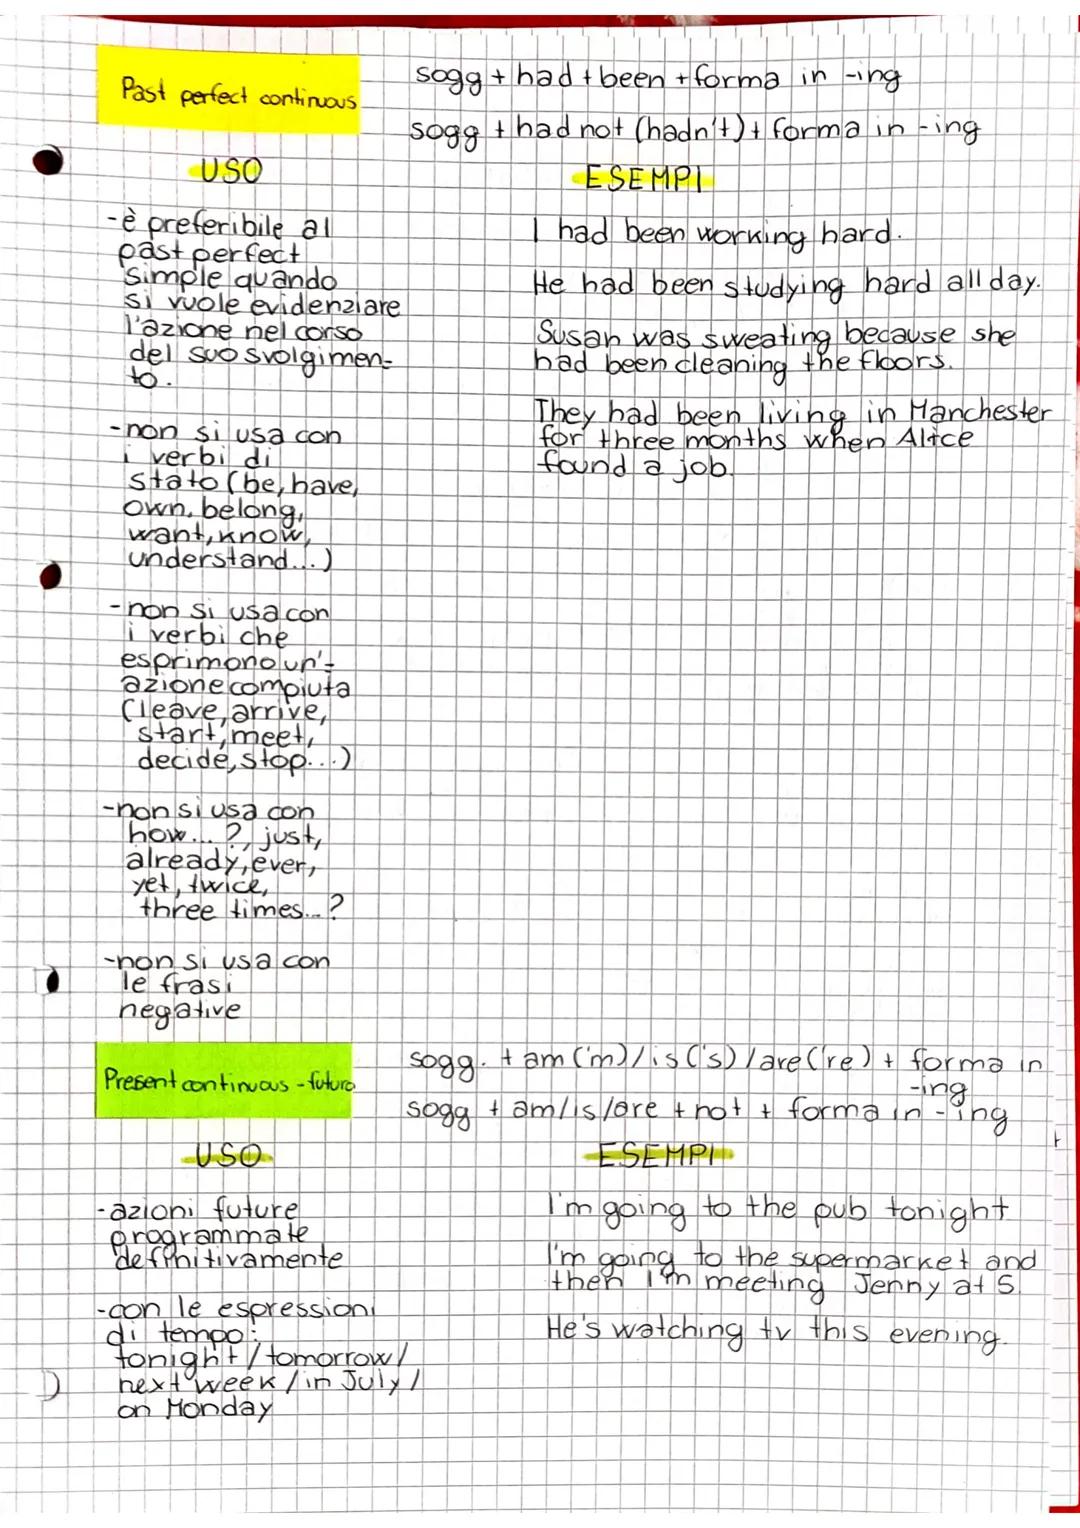 Past perfect continuous
sogg + had + been + forma in -ing
sogg + had not (hadn't) + forma in -ing
USO
-è preferibile al
past perfect
simple quando
si vuole evidenziare
l'azione nel corso
del suo svolgimen-
to.
-non si usa con
i verbi di
stato (be, have,
own, belong,
want, know,
understand...)
-non si usa con
i verbi che
esprimono un'-
azione compiuta
(leave, arrive,
start, meet,
decide, stop...)
-non si usa con
how...?, just,
already, ever,
yet, twice,
three times...?
-non si usa con
le frasi
negative
ESEMPI
I had been working hard.
He had been studying hard all day.
Susan was sweating because she
had been cleaning the floors.
They had been living in Manchester
for three months when Alice
found a job.
Present continuous - futuro
sogg. + am ('m) / is ('s) / are ('re) + forma in
-ing
sogg + am/is/are + not + forma in -ing
USO
-azioni future
programmate
definitivamente
-con le espressioni
di tempo:
tonight / tomorrow /
next week / in July /
on Monday
ESEMPI
I'm going to the pub tonight
I'm going to the supermarket and
then I'm meeting Jenny at 5.
He's watching tv this evening.